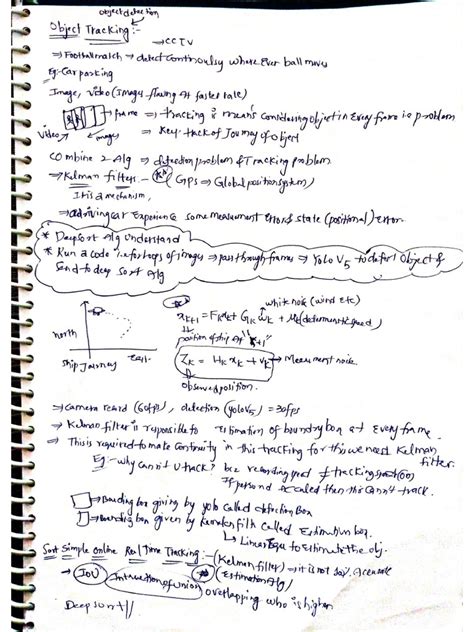 Object detection
Object Tracking:-
→CCTV
⇒ Football match → detect Continoulsy where Ever ball moves
Eg: Car parking
Image, video (Images flowing At faster rate)
frame ⇒ tracking is means Considering object in Every frame i.e problem
video images ⇒ Key track of Journey of object
Combine 2 Alg ⇒ detection problem & Tracking problem
⇒ Kelman filters - (GPS ⇒ Global position system)
It is a mechanism,
⇒ a driving car Experience some measurement Errors state (positional) Error.
* Deepsort Alg Understand
* Run a code i.e for loops of images ⇒ pass through frames ⇒ Yolo V5 to detect Object &
Send to deep sort Alg
white noise (wind etc)
x_{k+1} = F_k x_k + G_k w_k + M_k (deterministic speed)
north
position of ship At "k+1"
Z_k = H_k x_k + v_k → Measurment noise
Ship Journey
observed position.
⇒ Camera record (60fps), detection (yolov5) = 30fps
⇒ Kelman filter is responsible to Estimation of boundry box at Every frame.
⇒ This is required to make Continuity in this tracking for this we need Kelman
filter.
Eg:- why Can n't U track? bcz recording speed ≠ tracking speed
If person scaled then this Can't track.
⇒ Bounding box giving by yolo Called detection Box
⇒ Bounding box given by Filter Called Estimation box.
↳ Linear to Estimate the obj.
Sort Simple online Real Time Tracking:- (Kelman filter) ⇒ it is not
⇒ IOU Intersection of union (Estimation Alg)
overlapping who is higher
Deepsort //